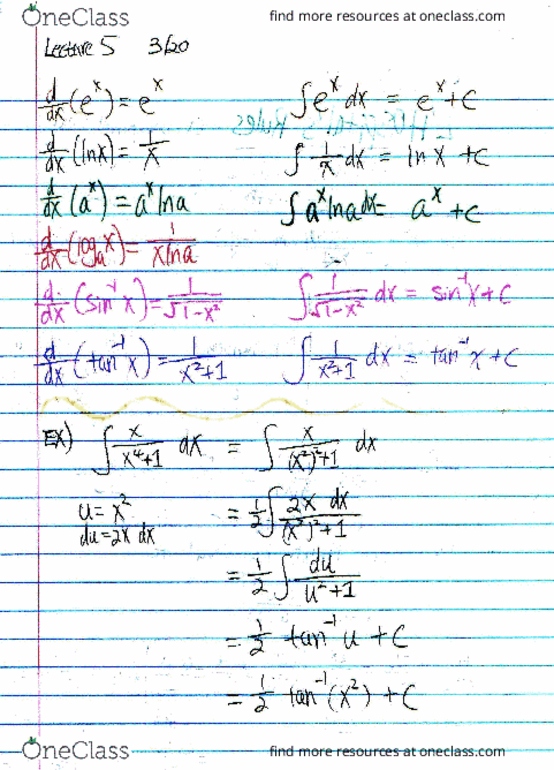 OneClass find more resources at oneclass.com
Lecture 5 3/20
d/dx (e^x) = e^x ∫ e^x dx = e^x + C
d/dx (ln x) = 1/x ∫ 1/x dx = ln x + C
d/dx (a^x) = a^x ln a ∫ a^x ln a dx = a^x + C
d/dx (log_a x) = 1/(x ln a)
d/dx (sin^-1 x) = 1/√(1-x^2) ∫ 1/√(1-x^2) dx = sin^-1 x + C
d/dx (tan^-1 x) = 1/(x^2+1) ∫ 1/(x^2+1) dx = tan^-1 x + C
EX) ∫ x/(x^4+1) dx = ∫ x/((x^2)^2+1) dx
u = x^2 = 1/2 ∫ 2x dx/((x^2)^2+1)
du = 2x dx
= 1/2 ∫ du/(u^2+1)
= 1/2 tan^-1 u + C
= 1/2 tan^-1 (x^2) + C
OneClass find more resources at oneclass.com